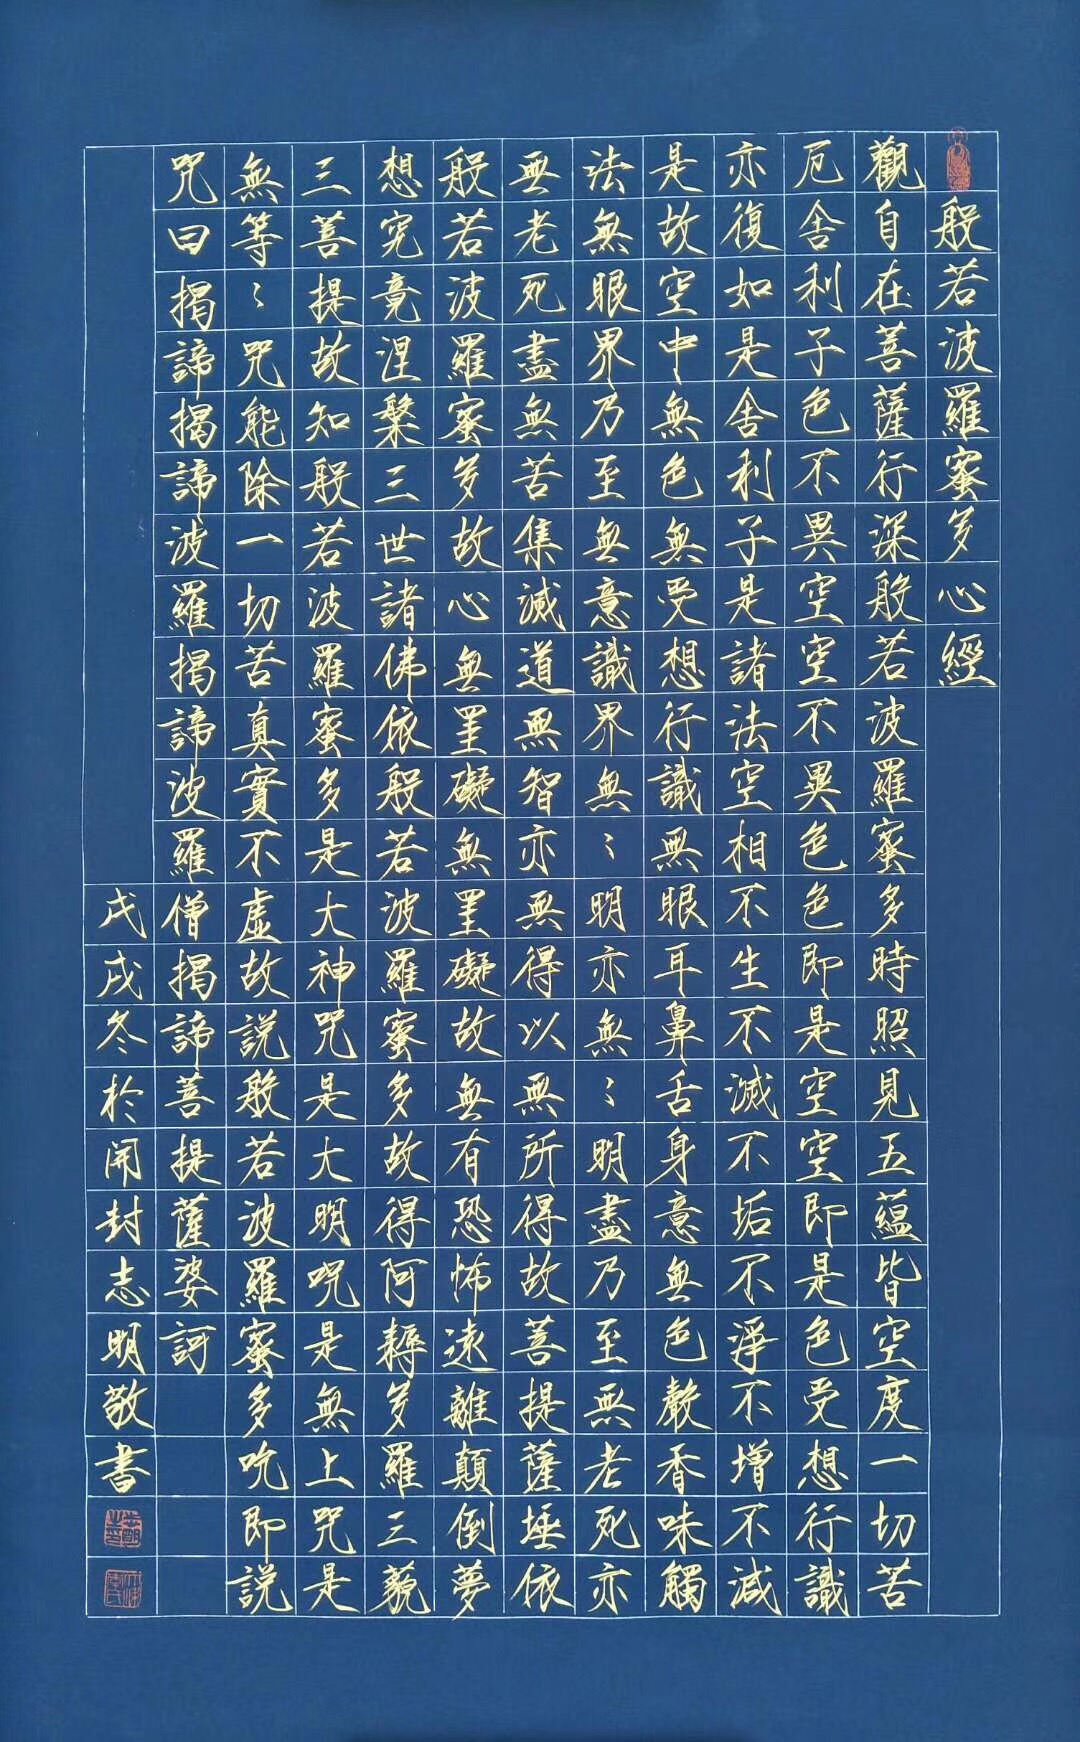 般若波羅蜜多心經
觀自在菩薩行深般若波羅蜜多時照見五蘊皆空度一切苦
厄舍利子色不異空空不異色色即是空空即是色受想行識
亦復如是舍利子是諸法空相不生不滅不垢不淨不增不減
是故空中無色無受想行識無眼耳鼻舌身意無色聲香味觸
法無眼界乃至無意識界無〻明亦無〻明盡乃至無老死亦
無老死盡無苦集滅道無智亦無得以無所得故菩提薩埵依
般若波羅蜜多故心無罣礙無罣礙故無有恐怖遠離顛倒夢
想究竟涅槃三世諸佛依般若波羅蜜多故得阿耨多羅三藐
三菩提故知般若波羅蜜多是大神咒是大明咒是無上咒是
無等〻咒能除一切苦真實不虛故說般若波羅蜜多咒即說
咒曰揭諦揭諦波羅揭諦波羅僧揭諦菩提薩婆訶
戊戌冬於開封志明敬書